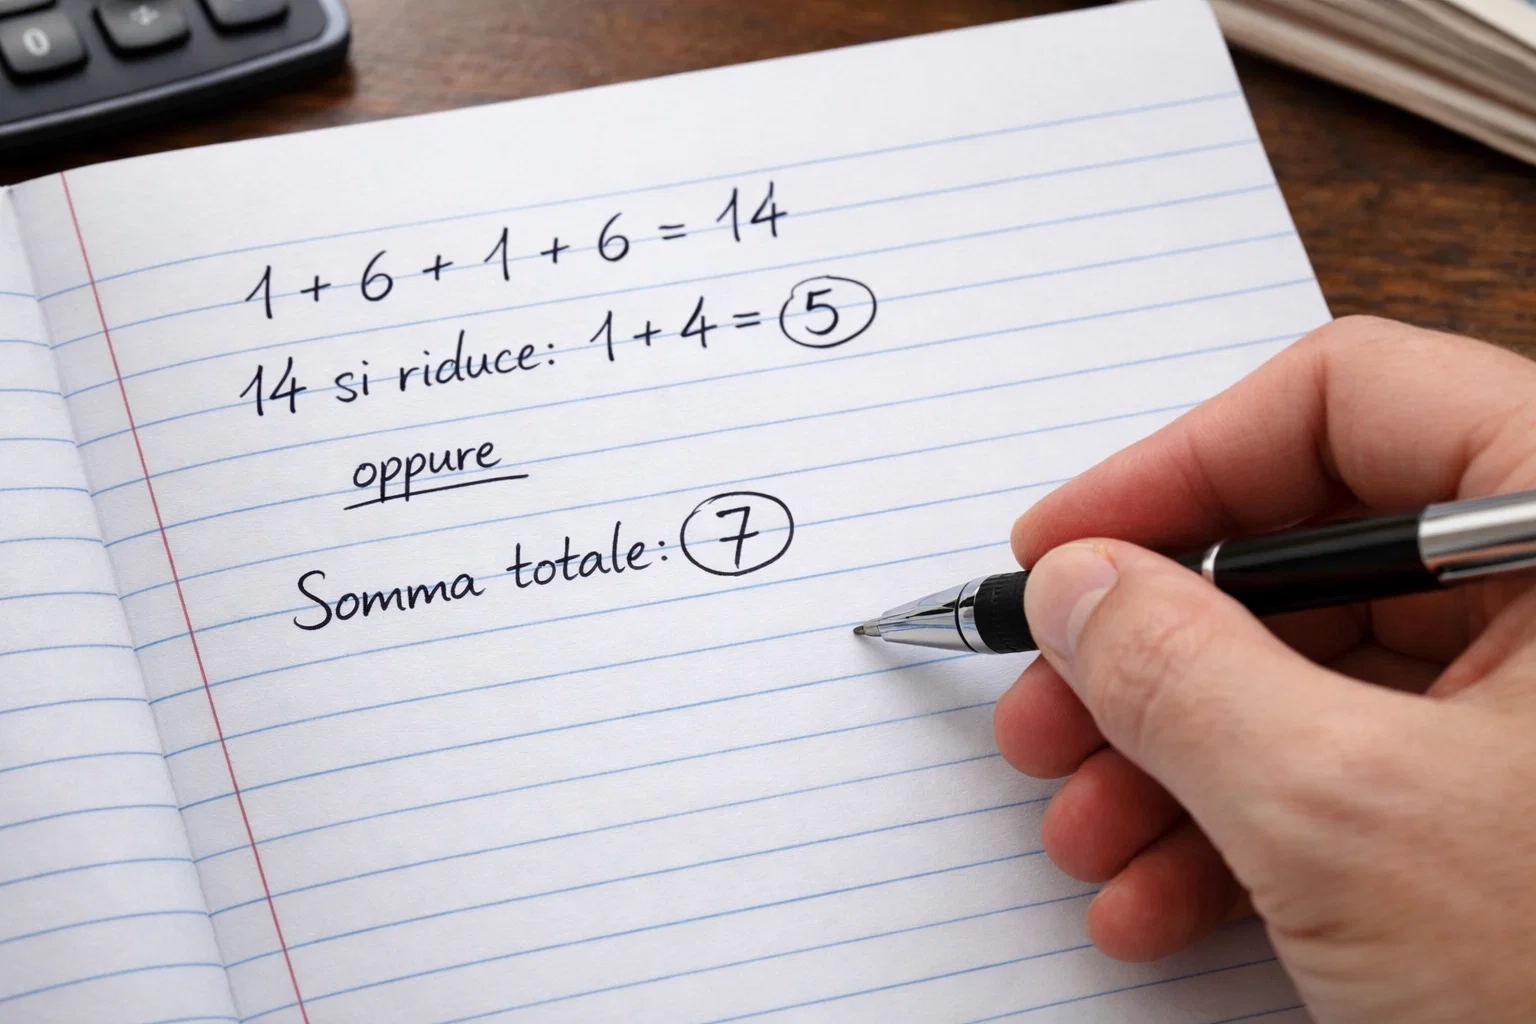 0
1 + 6 + 1 + 6 = 14
14 si riduce: 1 + 4 = 5
oppure
Somma totale: 7